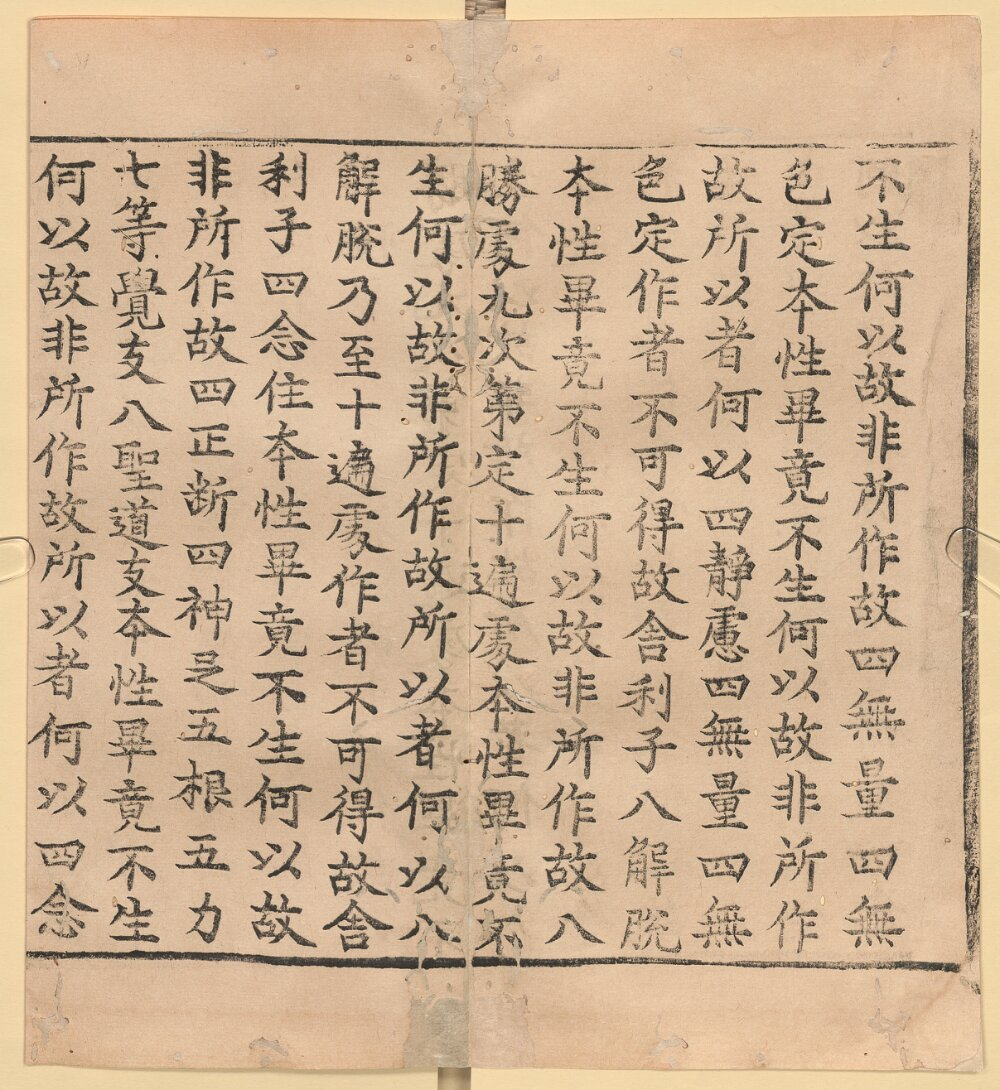 不生何以故非所作故四無量四無
色定本性畢竟不生何以故非所作
故所以者何以四靜慮四無量四無
色定作者不可得故舍利子八解脫
本性畢竟不生何以故非所作故八
勝處九次第定十遍處本性畢竟不
生何以故非所作故所以者何以八
解脫乃至十遍處作者不可得故舍
利子四念住本性畢竟不生何以故
非所作故四正断四神足五根五力
七等覺支八聖道支本性畢竟不生
何以故非所作故所以者何以四念